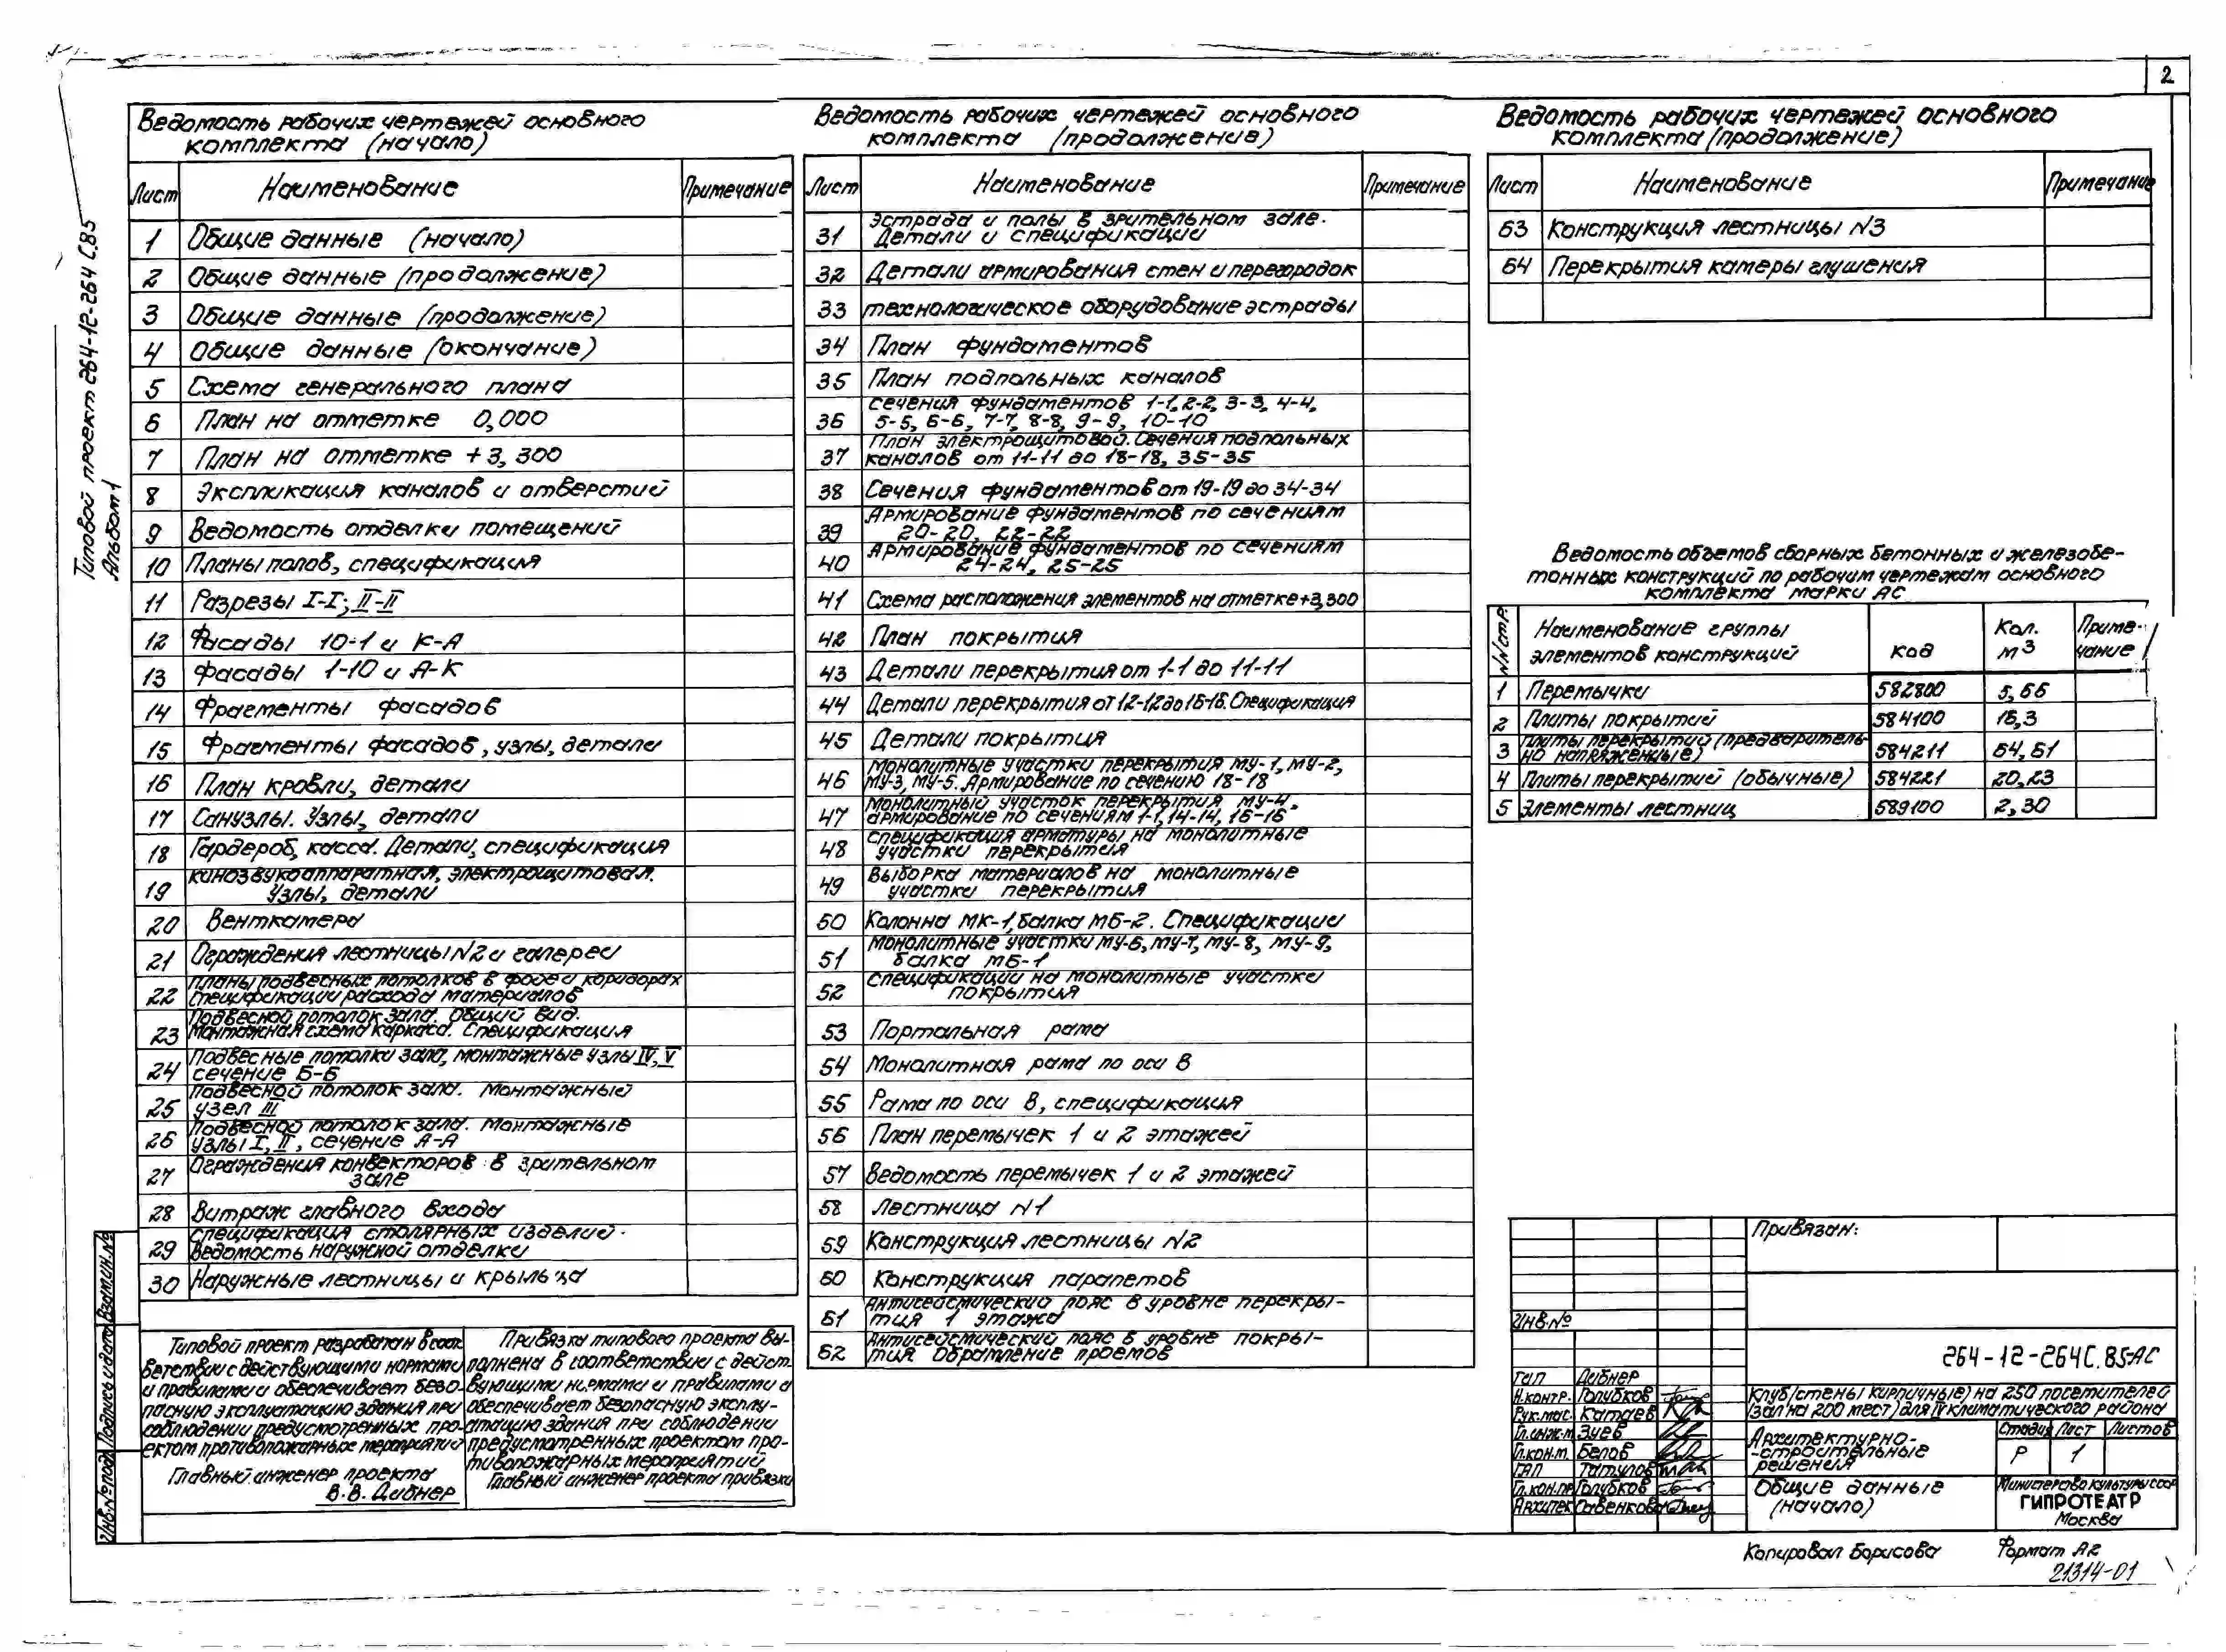 2
Типовой проект 264-12-264 С.85
Альбом 1
Ведомость рабочих чертежей основного
комплекта (начало)
Лист Наименование Примечание
1 Общие данные (начало)
2 Общие данные (продолжение)
3 Общие данные (продолжение)
4 Общие данные (окончание)
5 Схема генерального плана
6 План на отметке 0,000
7 План на отметке +3,300
8 Экспликация каналов и отверстий
9 Ведомость отделки помещений
10 Планы полов, спецификация
11 Разрезы I-I; II-II
12 Фасады 10-1 и К-А
13 Фасады 1-10 и А-К
14 Фрагменты фасадов
15 Фрагменты фасадов, узлы, детали
16 План кровли, детали
17 Санузлы. Узлы, детали
18 Гардероб, касса. Детали, спецификация
19 Кинозвукоаппаратная, электрощитовая.
Узлы, детали
20 Венткамера
21 Ограждения лестницы N2 и галереи
22 Планы подвесных потолков в фойе и коридорах
Спецификации расхода материалов
23 Подвесной потолок зала. Общий вид.
Монтажная схема каркаса. Спецификация
24 Подвесные потолки зала, монтажные узлы IV, V
сечение Б-Б
25 Подвесной потолок зала. Монтажный
узел III
26 Подвесной потолок зала. Монтажные
узлы I, II, сечение А-А
27 Ограждения конвекторов в зрительном
зале
28 Витраж главного входа
29 Спецификация столярных изделий.
Ведомость наружной отделки
30 Наружные лестницы и крыльца
Ведомость рабочих чертежей основного
комплекта (продолжение)
Лист Наименование Примечание
31 Эстрада и полы в зрительном зале.
Детали и спецификации
32 Детали армирования стен и перегородок
33 технологическое оборудование эстрады
34 План фундаментов
35 План подпольных каналов
36 Сечения фундаментов 1-1, 2-2, 3-3, 4-4,
5-5, 6-6, 7-7, 8-8, 9-9, 10-10
37 План электрощитовой. Сечения подпольных
каналов от 11-11 до 18-18, 35-35
38 Сечения фундаментов от 19-19 до 34-34
39 Армирование фундаментов по сечениям
20-20, 22-22
40 Армирование фундаментов по сечениям
24-24, 25-25
41 Схема расположения элементов на отметке +3,300
42 План покрытия
43 Детали перекрытия от 1-1 до 11-11
44 Детали перекрытия от 12-12 до 16-16. Спецификация
45 Детали покрытия
46 Монолитные участки перекрытия МУ-1, МУ-2,
МУ-3, МУ-5. Армирование по сечению 18-18
47 Монолитный участок перекрытия МУ-4.
армирование по сечениям 1-1, 14-14, 16-16
48 Спецификация арматуры на монолитные
участки перекрытия
49 Выборка материалов на монолитные
участки перекрытия
50 Колонна МК-1, балка МБ-2. Спецификации
51 Монолитные участки МУ-6, МУ-7, МУ-8, МУ-9,
балка МБ-1
52 Спецификации на монолитные участки
покрытия
53 Портальная рама
54 Монолитная рама по оси В
55 Рама по оси В, спецификация
56 План перемычек 1 и 2 этажей
57 Ведомость перемычек 1 и 2 этажей
58 Лестница N1
59 Конструкция лестницы N2
60 Конструкция парапетов
61 Антисейсмический пояс в уровне перекры-
тия 1 этажа
62 Антисейсмический пояс в уровне покры-
тия Обрамление проемов
Ведомость рабочих чертежей основного
комплекта (продолжение)
Лист Наименование Примечание
63 Конструкция лестницы N3
64 Перекрытия камеры глушения
Ведомость объемов сборных бетонных и железобе-
тонных конструкций по рабочим чертежам основного
комплекта марки АС
NN стр. Наименование группы элементов конструкций код Кол. м3 Приме-чание
1 Перемычки 582800 5,66
2 Плиты покрытий 584100 16,3
3 Плиты перекрытий (предваритель-
но напряженные) 584211 64,61
4 Плиты перекрытий (обычные) 584221 20,23
5 Элементы лестниц 589100 2,30
Типовой проект разработан в соот
ветствии с действующими нормами
и правилами и обеспечивает безо-
пасную эксплуатацию здания при
соблюдении предусмотренных про-
ектом противопожарных мероприятий
Главный инженер проекта
В.В. Дибнер
Привязка типового проекта вы-
полнена в соответствии с дейст.
вующими нормами и правилами и
обеспечивает безопасную эксплу-
атацию здания при соблюдении
предусмотренных проектом про-
тивопожарных мероприятий
Главный инженер проекта привязки
Инв.№подл. Подпись и дата Взам.инв.№
Привязан:
Инв.№
264-12-264С.85-АС
ГИП Дибнер
Н.контр. Голубков
Рук.мас. Катаев
Гл.инж.м Зуев
Гл.кон.м. Белов
ГАП Татулов
Гл.кон.пр Голубков
Архитек Савенкова
Клуб (стены кирпичные) на 250 посетителей
(зал на 200 мест) для IV климатического района
Архитектурно-
-строительные
решения
Стадия Лист Листов
Р 1
Общие данные
(начало)
Министерство культуры СССР
ГИПРОТЕАТР
Москва
Копировал Борисова Формат А2
21314-01